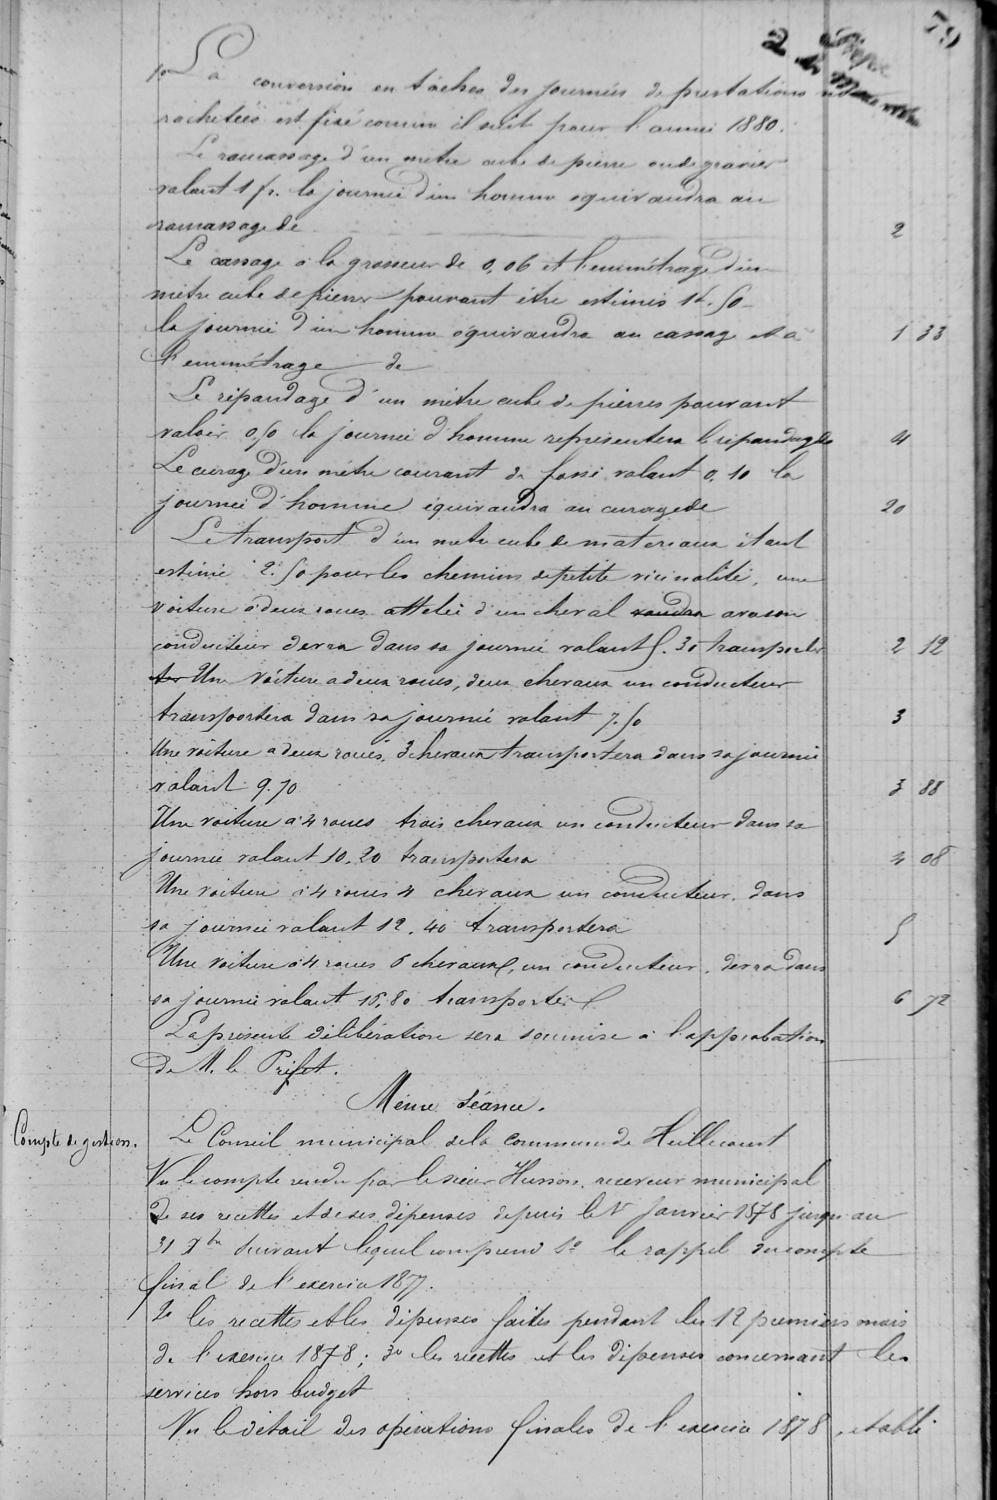 79
2
1º La conversion en tâches des journées de prestations non
rachetées est fixé comme il suit pour l'année 1880.
Le ramassage d'un mètre cube de pierre ou de gravier
valant 1 fr. la journée d'un homme équivaudra au
ramassage de 2
Le cassage à la grosseur de 0,06 et l'emmétrage d'un
mètre cube de pierres pouvant être estimés 1f.50
la journée d'un homme équivaudra au cassage et à 1 33
l'emmétrage de
Le répandage d'un mètre cube de pierres pouvant
valoir 0,50 la journée d'homme représentera le répandage de 4
Le curage d'un mètre courant de fossé valant 0,10 la
journée d'homme équivaudra au curage de 20
Le transport d'un mètre cube de matériaux étant
estimé 2.50 pour les chemins de petite vicinalité, une
voiture à deux roues attelée d'un cheval voudra avec son
conducteur devra dans sa journée valant 5.30 transporter 2 12
ter Une voiture a deux roues, deux chevaux un conducteur
transportera dans sa journée valant 7.50 3
Une voiture a deux roues, 3 chevaux transportera dans sa journée
valant 9.70 3 88
Une voiture à 4 roues trois chevaux un conducteur dans sa
journée valant 10.20 transportera 4 08
Une voiture à 4 roues 4 chevaux un conducteur, dans
sa journée valant 12.40 transportera 5
Une voiture à 4 roues 6 chevaux, un conducteur, devra dans
sa journée valant 16,80 transporter 6 72
La présente délibération sera soumise à l'approbation
de M. le Préfet.
Même séance.
Compte de gestion.
Le Conseil municipal de la commune de Heillecourt
Vu le compte rendu par le sieur Husson, receveur municipal
de ses recettes et de ses dépenses depuis le 1er Janvier 1878 jusqu'au
31 Xbre suivant lequel comprend 1º le rappel du compte
final de l'exercice 1877.
2º les recettes et les dépenses faites pendant les 12 premiers mois
de l'exercice 1878 ; 3º les recettes et les dépenses concernant les
services hors budget
Vu le détail des opérations finales de l'exercice 1878, établi